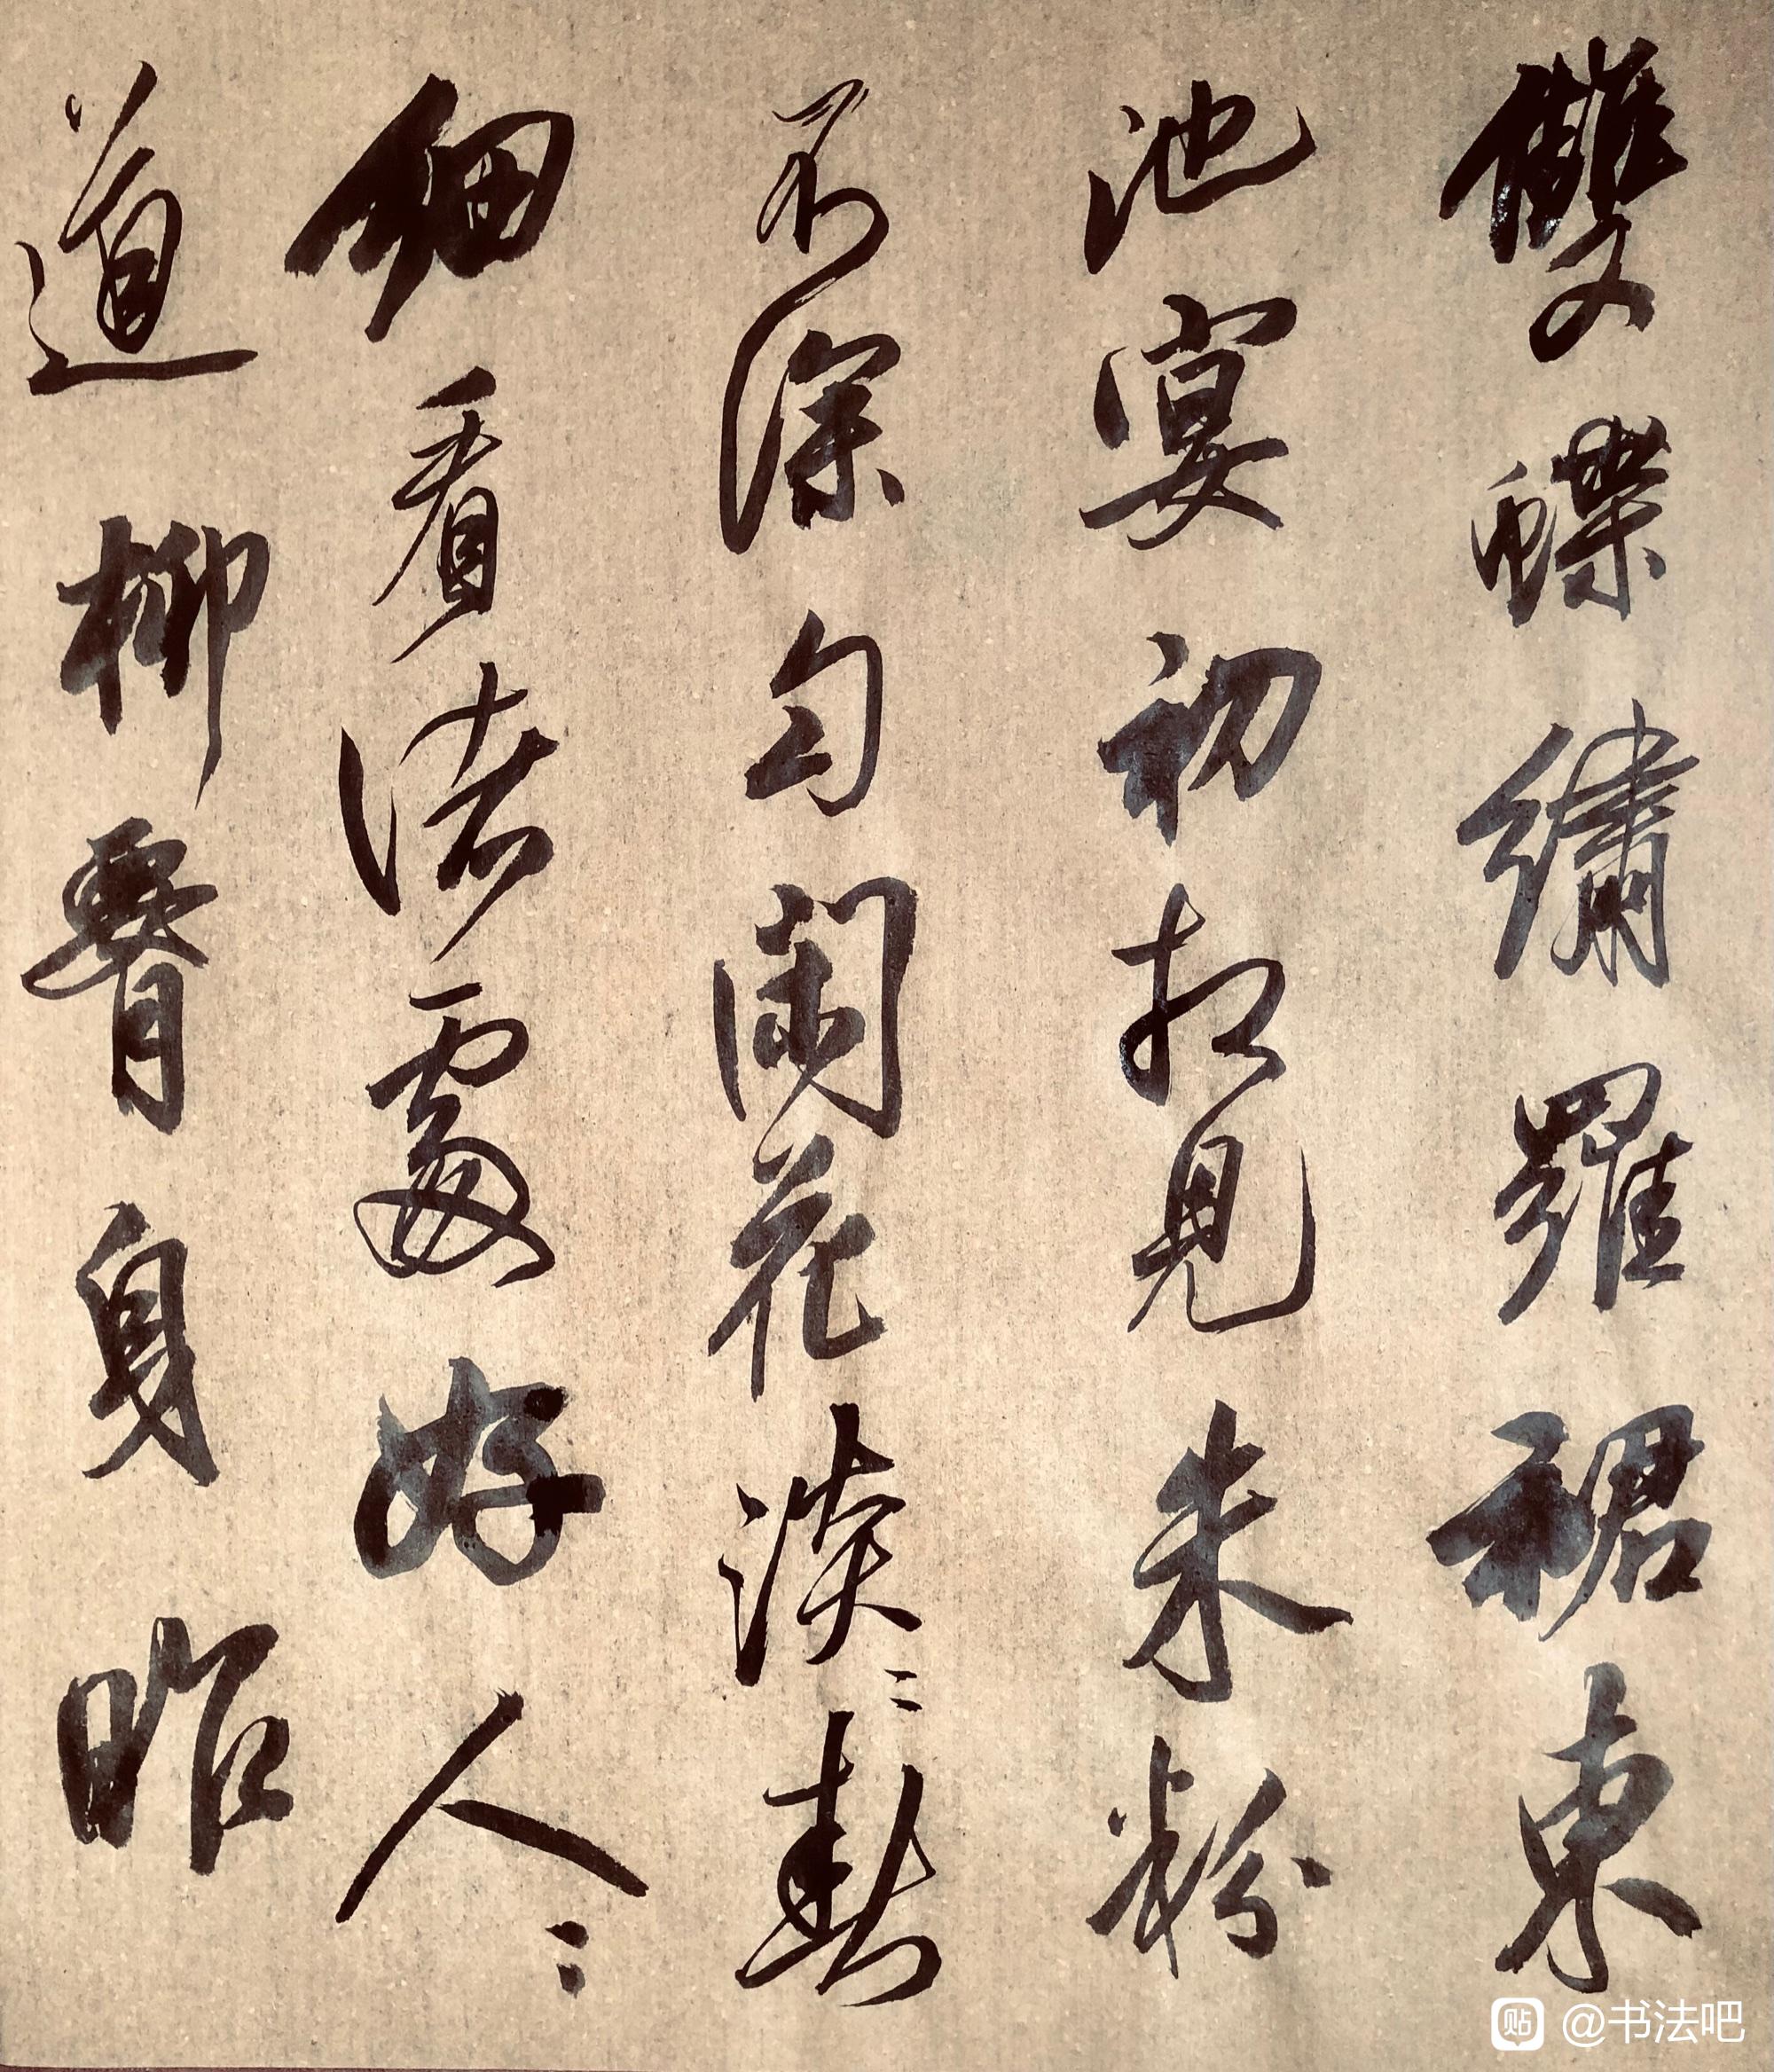 雙蝶繡羅裙東
池宴初相見朱粉
不深勻閑花淡〻春
細看諸處好人〻
道柳腰身昨
貼 @书法吧